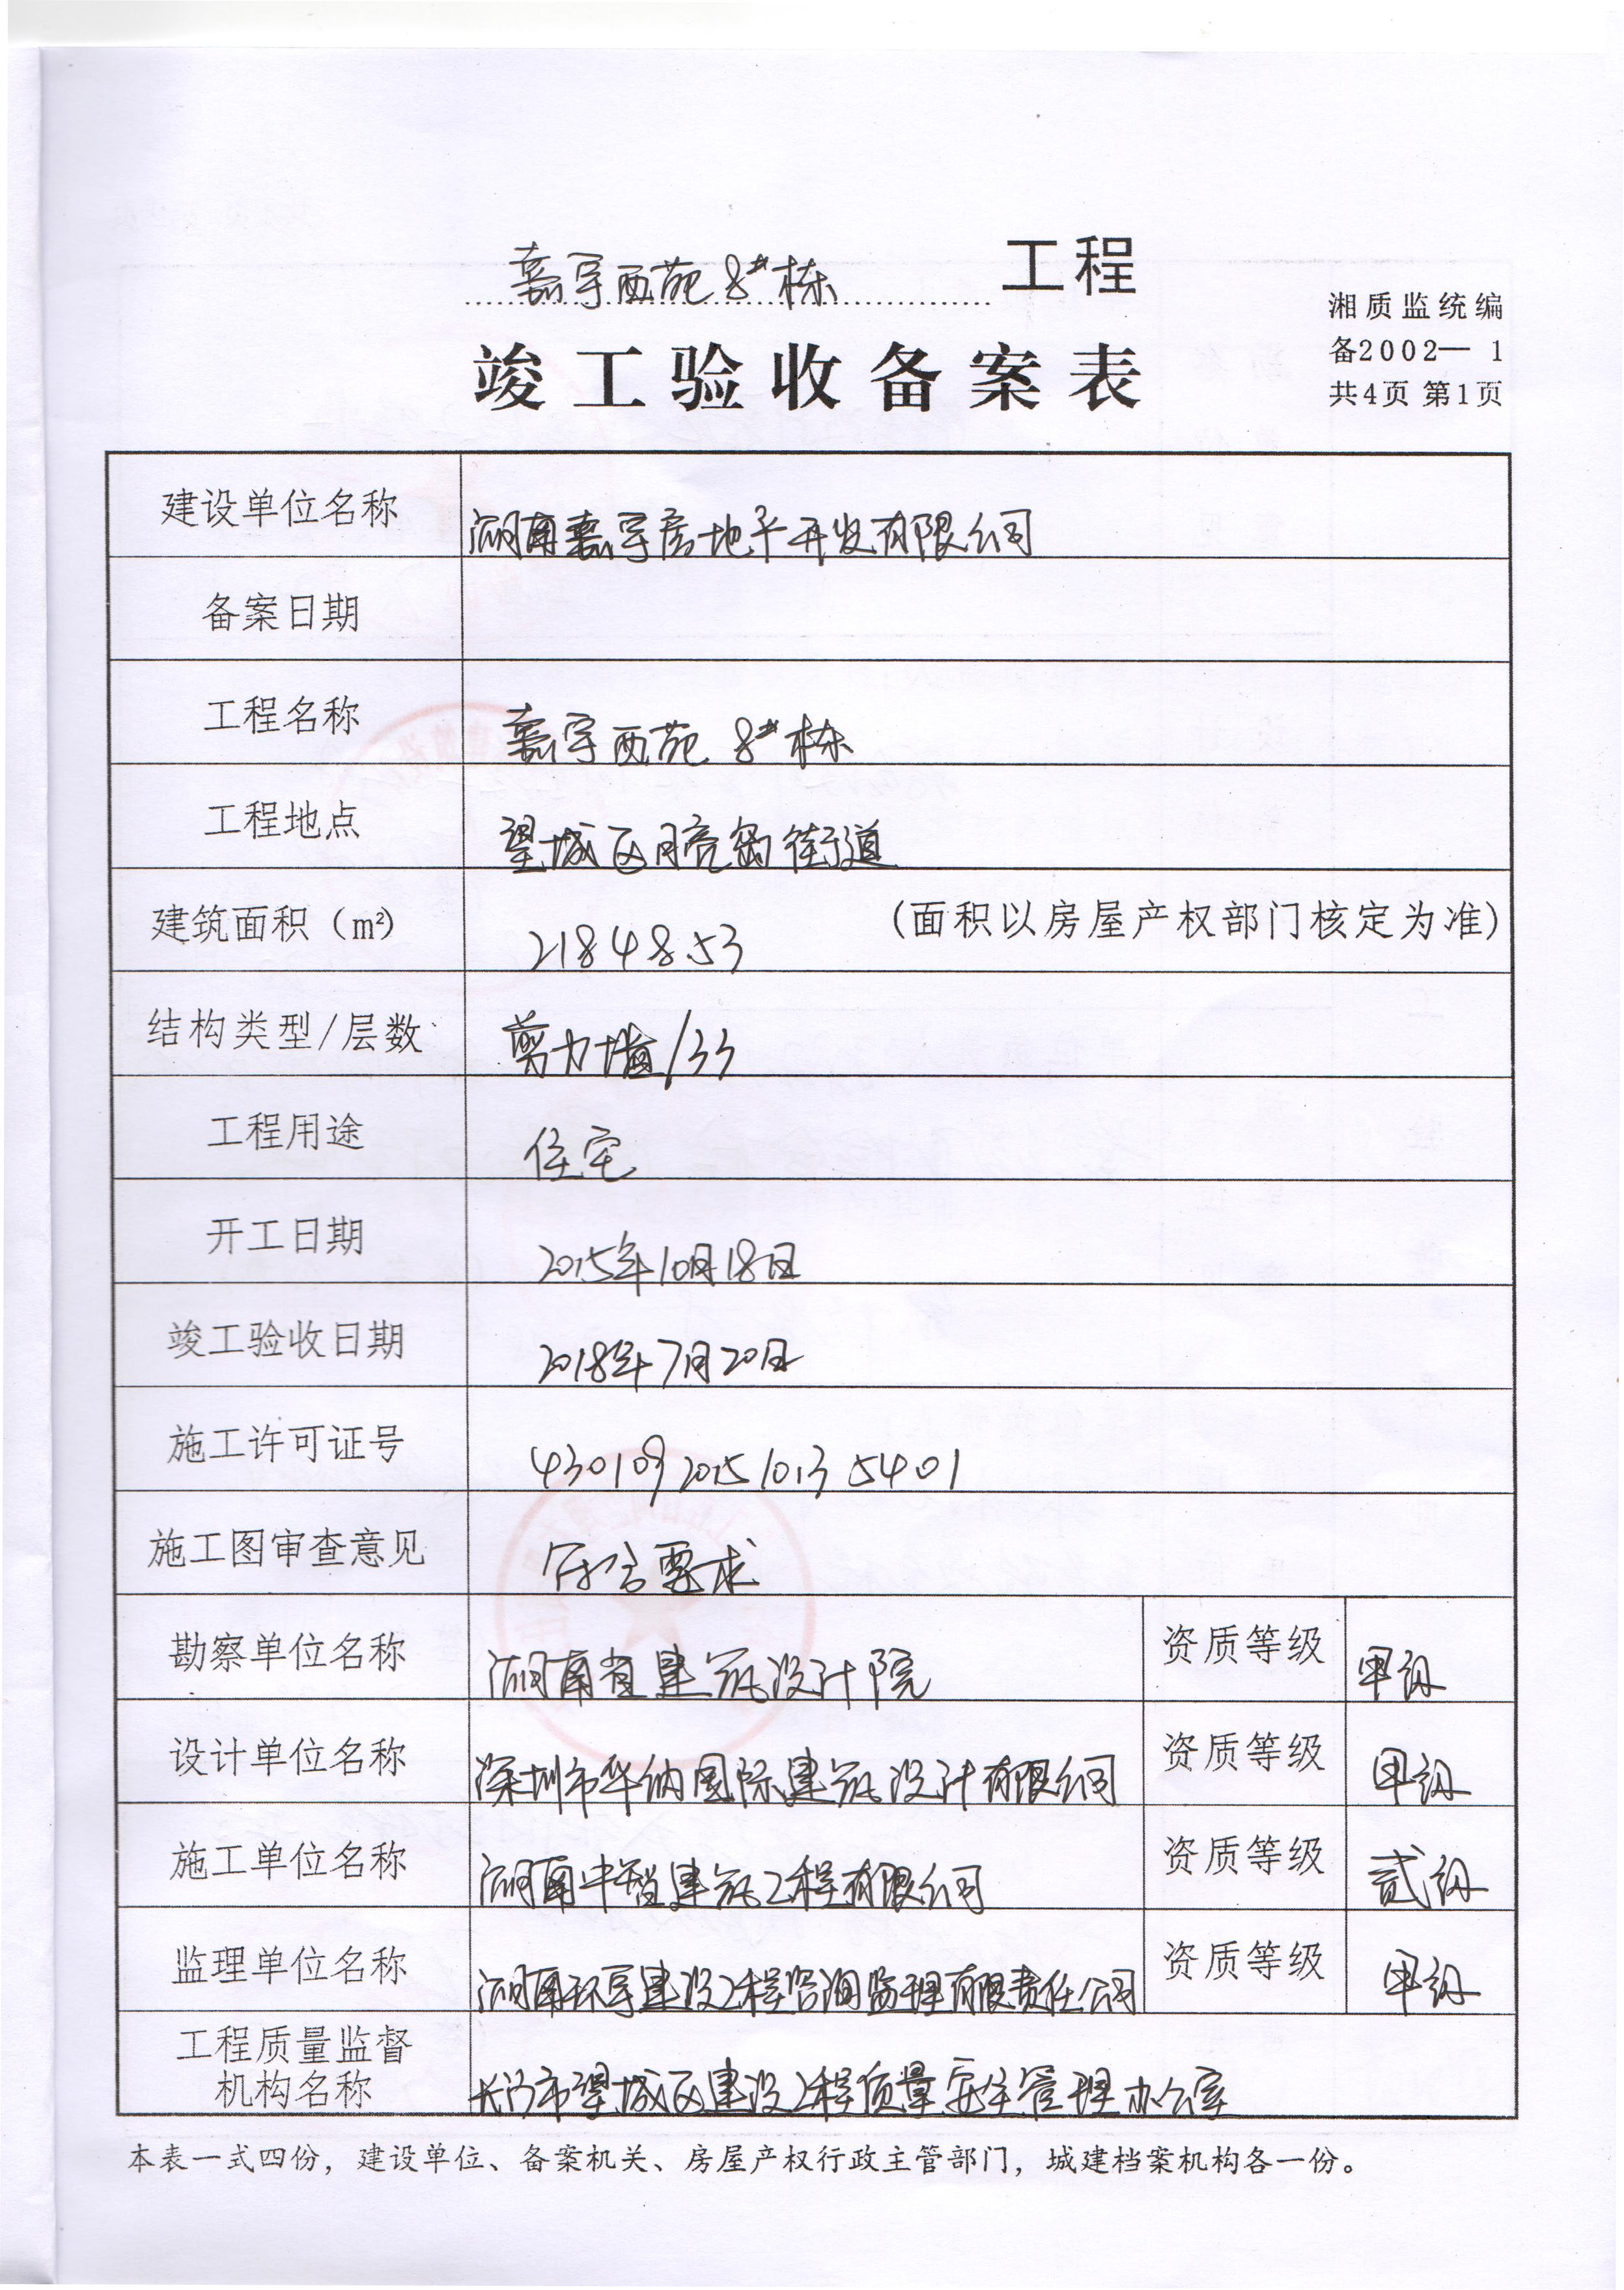 嘉宇西苑8#栋 工程
竣工验收备案表
湘质监统编
备2002—1
共4页 第1页
建设单位名称 湖南嘉宇房地产开发有限公司
备案日期
工程名称 嘉宇西苑 8#栋
工程地点 望城区月亮岛街道
建筑面积（m²） 21848.53 (面积以房屋产权部门核定为准)
结构类型/层数 剪力墙/33
工程用途 住宅
开工日期 2015年10月18日
竣工验收日期 2018年7月20日
施工许可证号 430109201510135401
施工图审查意见 符合要求
勘察单位名称 湖南省建筑设计院 资质等级 甲级
设计单位名称 深圳市华纳国际建筑设计有限公司 资质等级 甲级
施工单位名称 湖南中智建筑工程有限公司 资质等级 贰级
监理单位名称 湖南环宇建设工程咨询监理有限责任公司 资质等级 甲级
工程质量监督
机构名称 长沙市望城区建设工程质量安全管理办公室
本表一式四份，建设单位、备案机关、房屋产权行政主管部门，城建档案机构各一份。